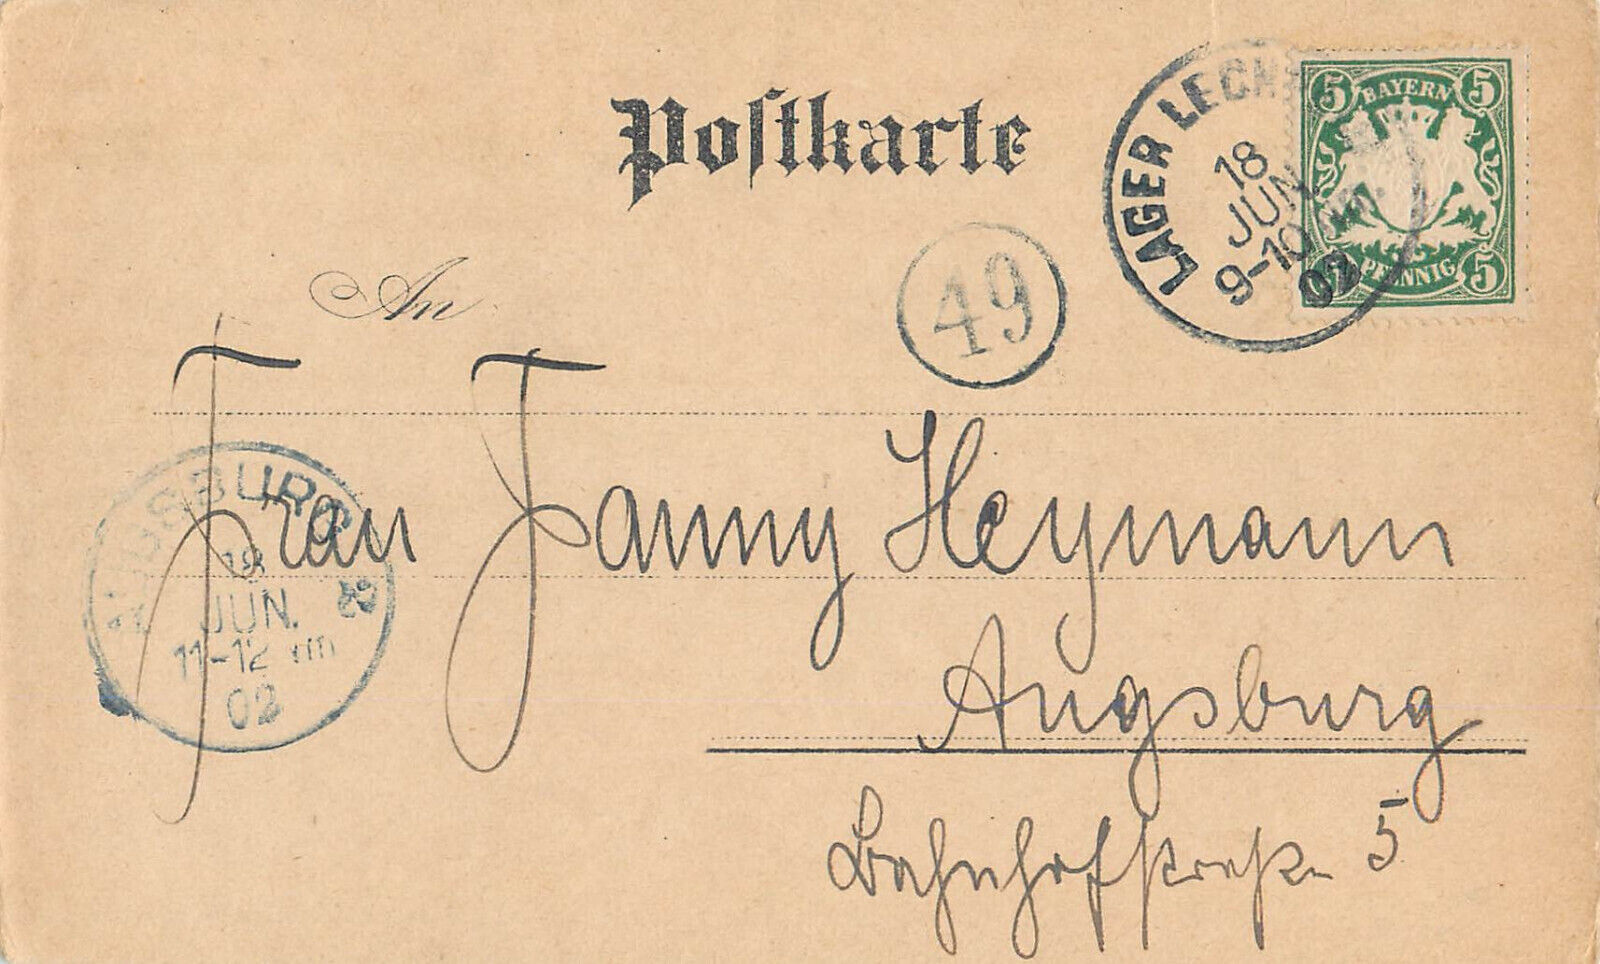 Postkarte
LAGER LECH
18
JUN.
9-10
02
5 BAYERN 5
PFENNIG 5
49
An
Frau Fanny Heymann
Augsburg
Bahnhofstraße 5
AUGSBURG
18
JUN.
11-12 Vm
02